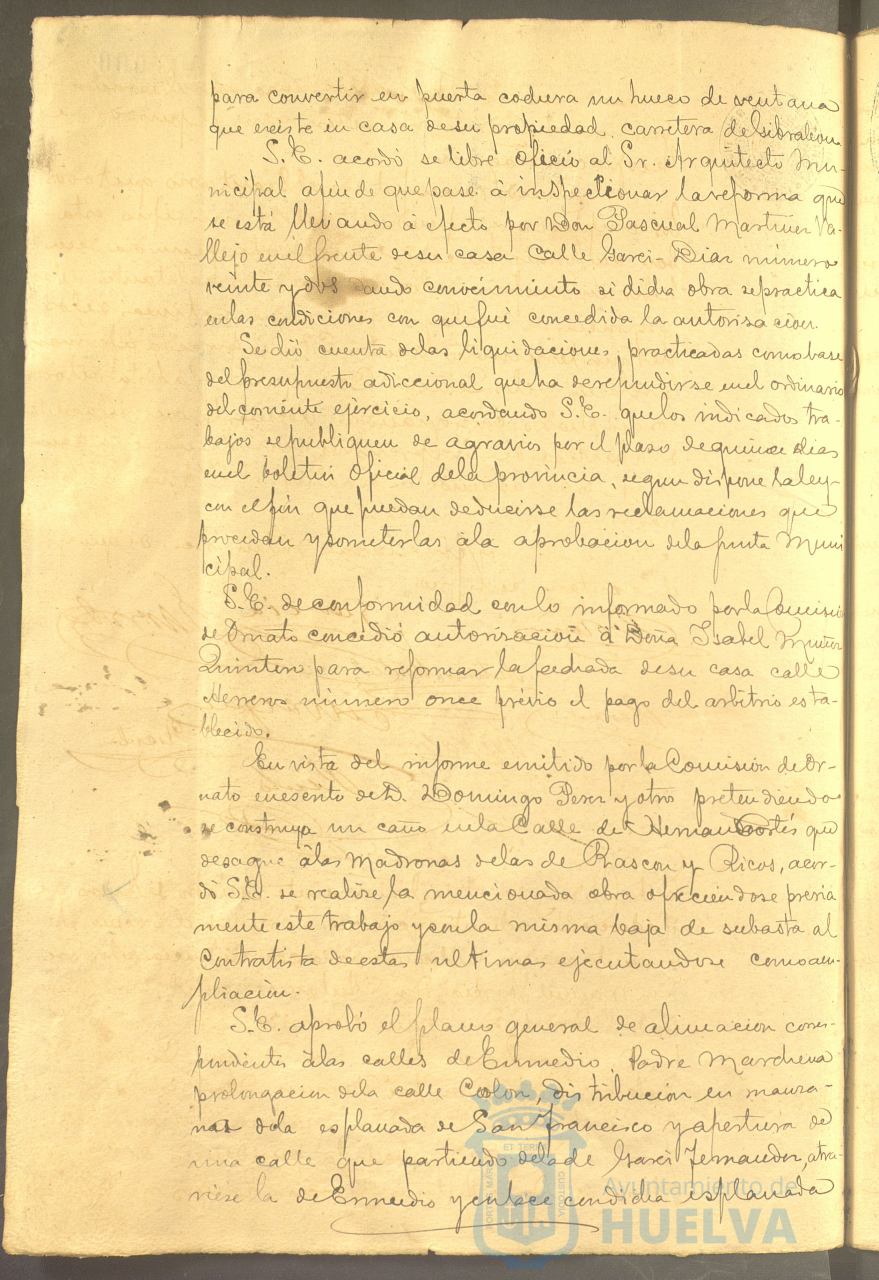 para convertir en puerta cochera un hueco de ventana
que existe en casa de su propiedad, carretera de Gibraleon.
S. E. acordó se libre oficio al Sr. Arquitecto Mu-
nicipal afin de que pase á inspeccionar la reforma que
se está llevando á efecto por Don Pascual Martinez Va-
llejo en el frente de su casa Calle Garci-Diaz número
veinte y dos dando conocimiento si dicha obra se practica
en las condiciones con que fué concedida la autorizacion.
Se dió cuenta de las liquidaciones practicadas como base
del presupuesto adiccional que ha de refundirse en el ordinario
del corriente ejercicio, acordando S. E. que los indicados tra-
bajos se publiquen de agravios por el plazo de quince dias
en el boletin oficial de la provincia, segun dispone la ley
con el fin que puedan deducirse las reclamaciones que
procedan y someterlas á la aprobacion de la Junta Muni
cipal.
S. E. de conformidad con lo informado por la Comision
de Ornato concedió autorizacion á Doña Isabel Muñoz
Quintero para reformar la fachada de su casa calle
Herreros número once prévio el pago del arbitrio esta-
blecido.
En vista del informe emitido por la Comision de Or-
nato en escrito de D. Domingo Perez y otro pretendiendo
se construya un caño en la Calle de Hernan Cortés que
desague á las Madronas de las de Rascon y Ricos, acor-
dó S. E. se realize la mencionada obra ofreciendose previa
mente este trabajo y con la misma baja de subasta al
Contratista de estas ultimas ejecutandose como am-
pliacion.
S. E. aprobó el plano general de alineacion corres-
pondientes á las calles de Enmedio, Padre Marchena
prolongacion de la calle Coslon, distribucion en manza-
nas de la esplanada de San Francisco y apertura de
una calle que partiendo de la de Garci Fernandez, atra-
viese la de Enmedio y enlace con dicha esplanada
Ayuntamiento de
HUELVA